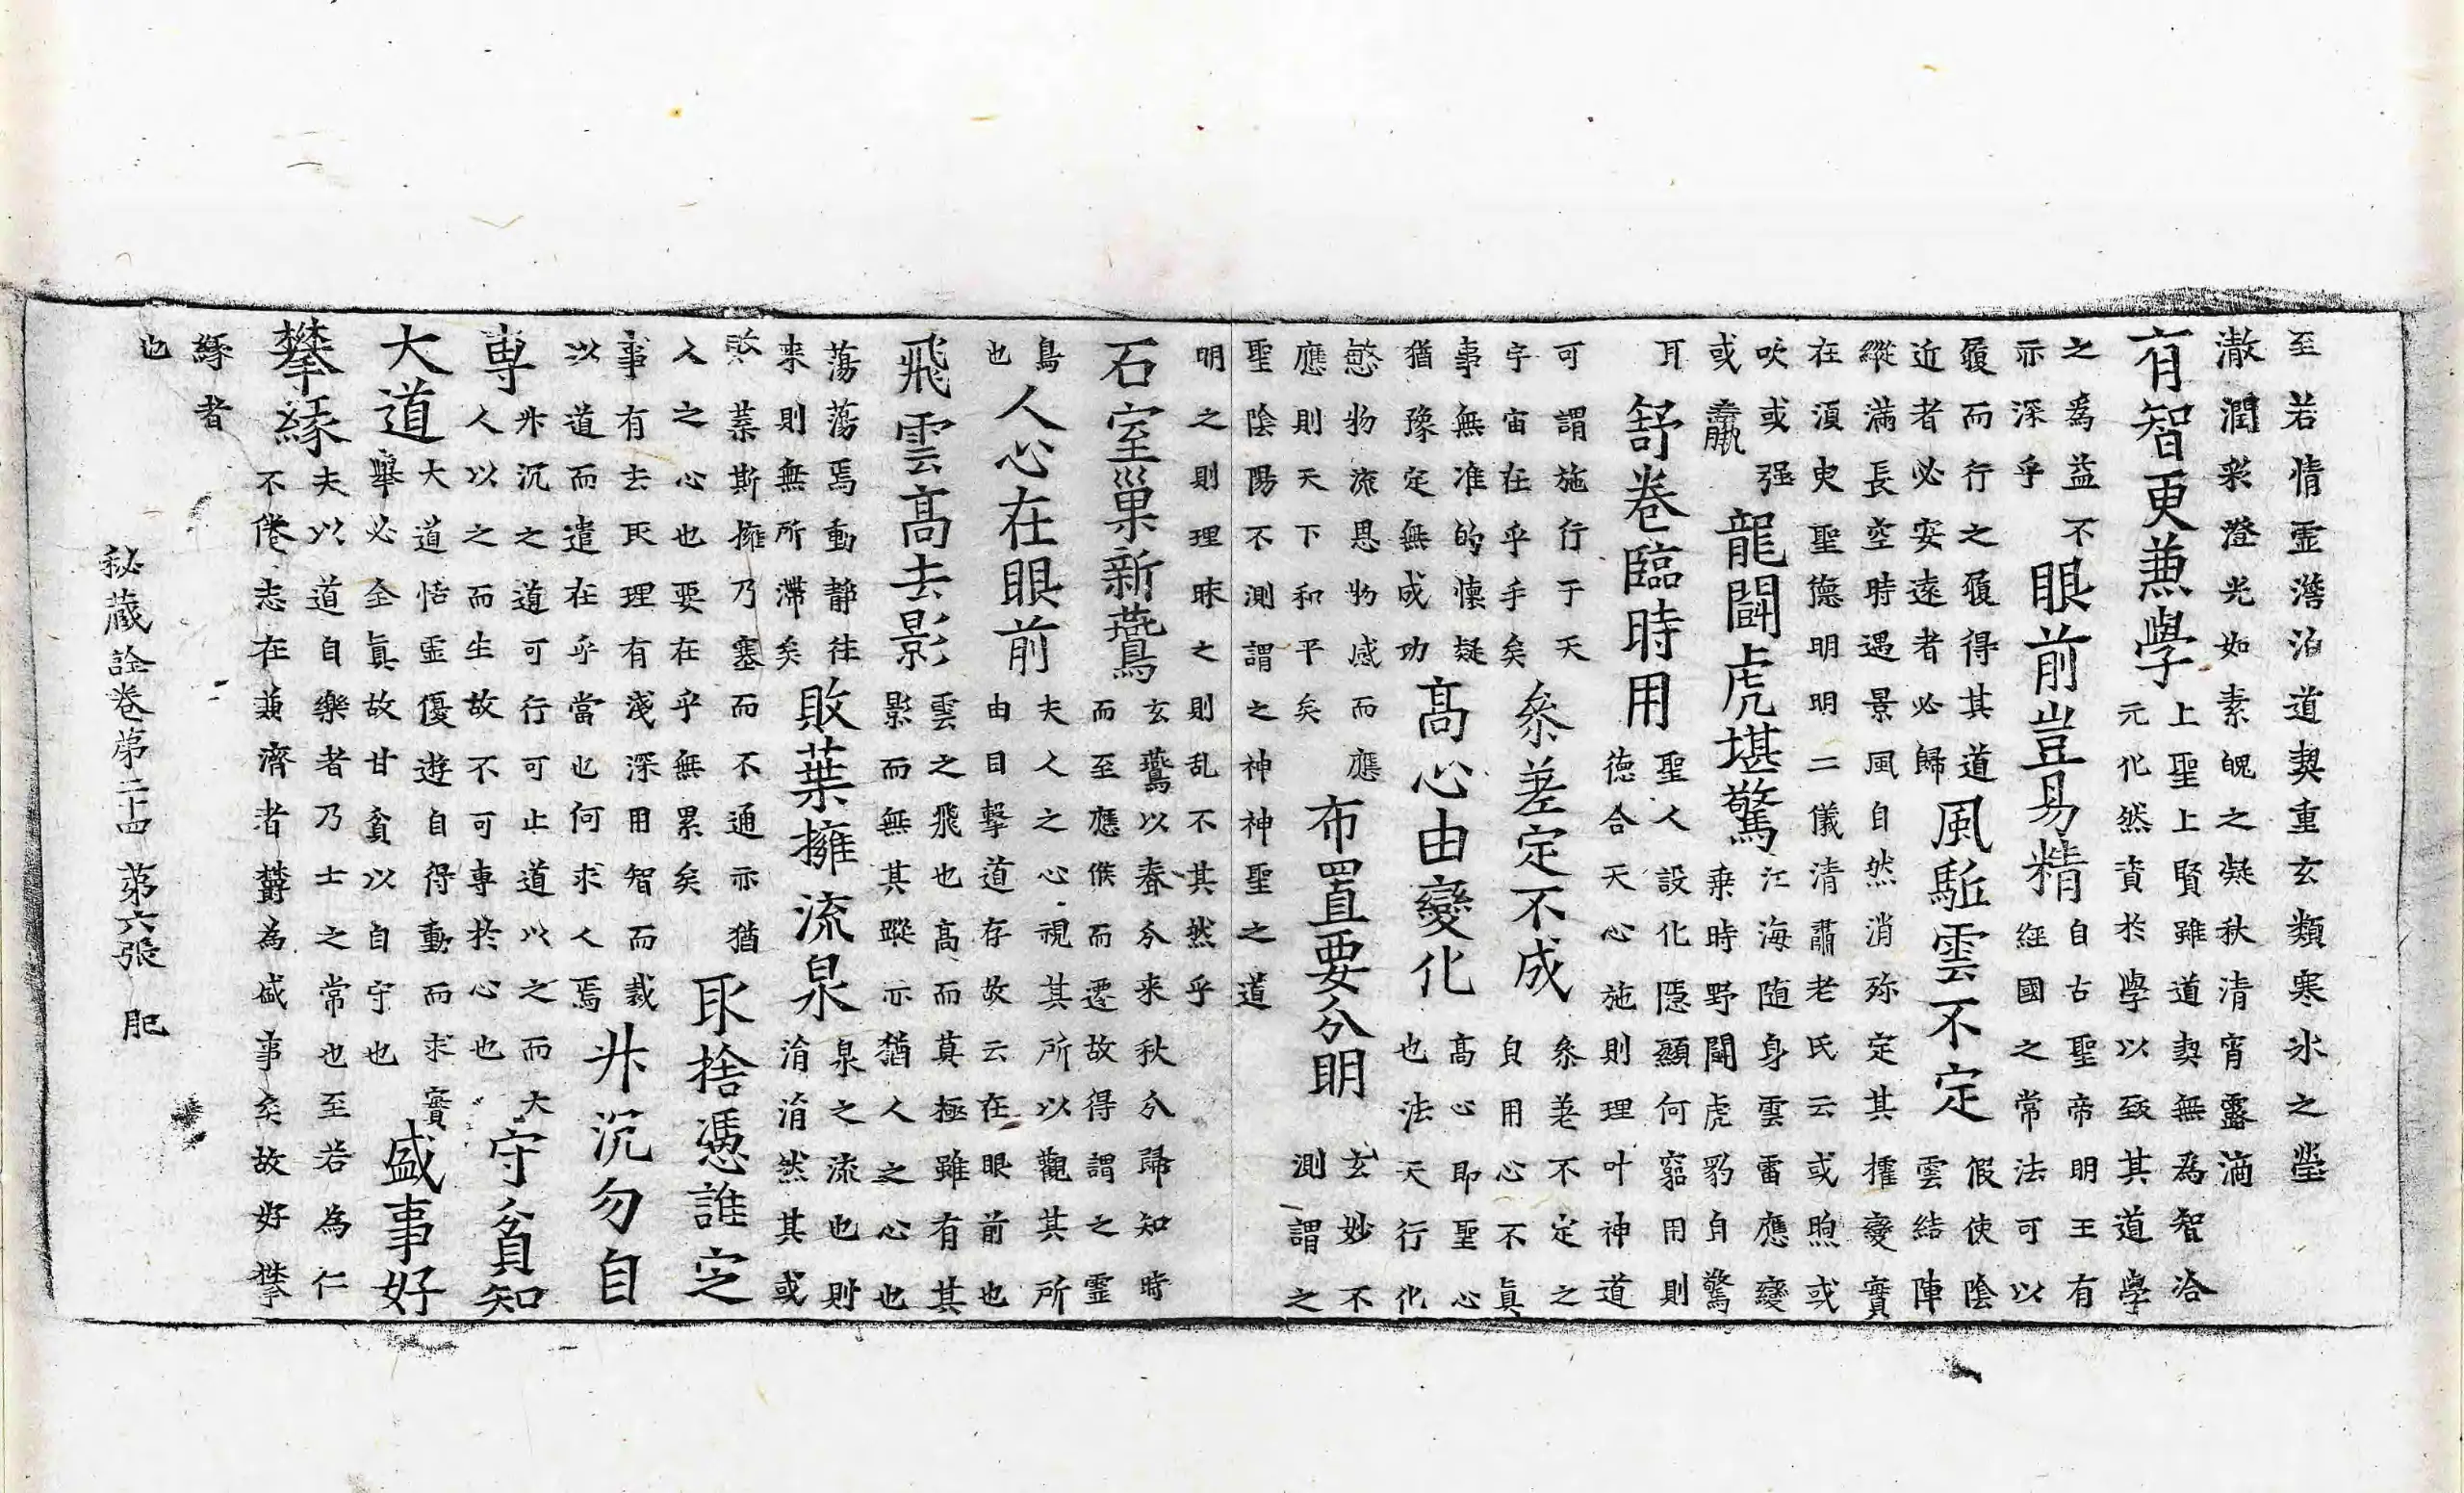 至若情霊澹泊道契重玄類寒氷之瑩
澈潤彩澄光如素魄之凝秋清宵露滴
有智更兼學
上聖上賢雖道契無為智洽
元化然賁於學以致其道學
之為益不
亦深乎
眼前豈易精
自古聖帝明王有
経國之常法可以
履而行之履得其道
近者必安遠者必歸
風駈雲不定
假使陰
雲結陣
縱滿長空時遇景風自然消弥定其摧變實
在湏㬰聖德明明二儀清肅老氏云或煦或
吹或强
或羸
龍闘虎堪驚
江海随身雲雷應變
乗時野闘虎豹自驚
耳
舒卷臨時用
聖人設化隱顯何窮用則
徳合天心施則理叶神道
可謂施行于天
宇宙在乎手矣
叅差定不成
叅差不定之
貟用心不真
事無准的懷疑
猶豫定無成功
髙心由變化
髙心即聖心
也法天行化
慜物流恩物感而應
應則天下和平矣
布置要分明
玄妙不
測謂之
聖陰陽不測謂之神神聖之道
明之則理昧之則乱不其然乎
石室巢新鷰
玄鷰以春分来秋分歸知時
而至應候而遷故得謂之靈
鳥
也
人心在眼前
夫人之心視其所以觀其所
由目擊道存故云在眼前也
飛雲髙去影
雲之飛也髙而莫極雖有其
影而無其蹤亦猶人之心也
蕩蕩焉動靜往
来則無所滯矣
敗葉擁流泉
泉之流也則
涓涓然其或
敗葉斯擁乃塞而不通亦猶
人之心也要在乎無累矣
取捨憑誰定
事有去取理有淺深用智而裁
以道而遣在乎當也何求人焉
升沉勿自
専
升沉之道可行可止道以之而大
人以之而生故不可専於心也
守貧知
大道
大道恬霊優遊自得動而求實
舉必全真故甘貧以自守也
盛事好
攀緣
夫以道自樂者乃士之常也至若為仁
不倦志在兼濟者欝為盛事矣故好攀
緣者
也
秘蔵詮卷第二十四 第六張 肥